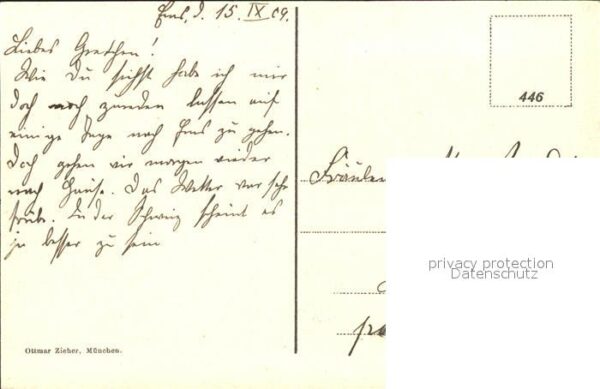 Ems, d. 15. IX 09.
Liebes Gretchen!
Wie Du siehst habe ich mir
doch noch zureden lassen auf
einige Tage nach Ems zu gehen.
Doch gehen wir morgen wieder
nach Hause. Das Wetter war sehr
trübe. In der Schweiz scheint es
ja besser zu sein
446
Fräulein
privacy protection
Datenschutz
Ottmar Zieher, München.